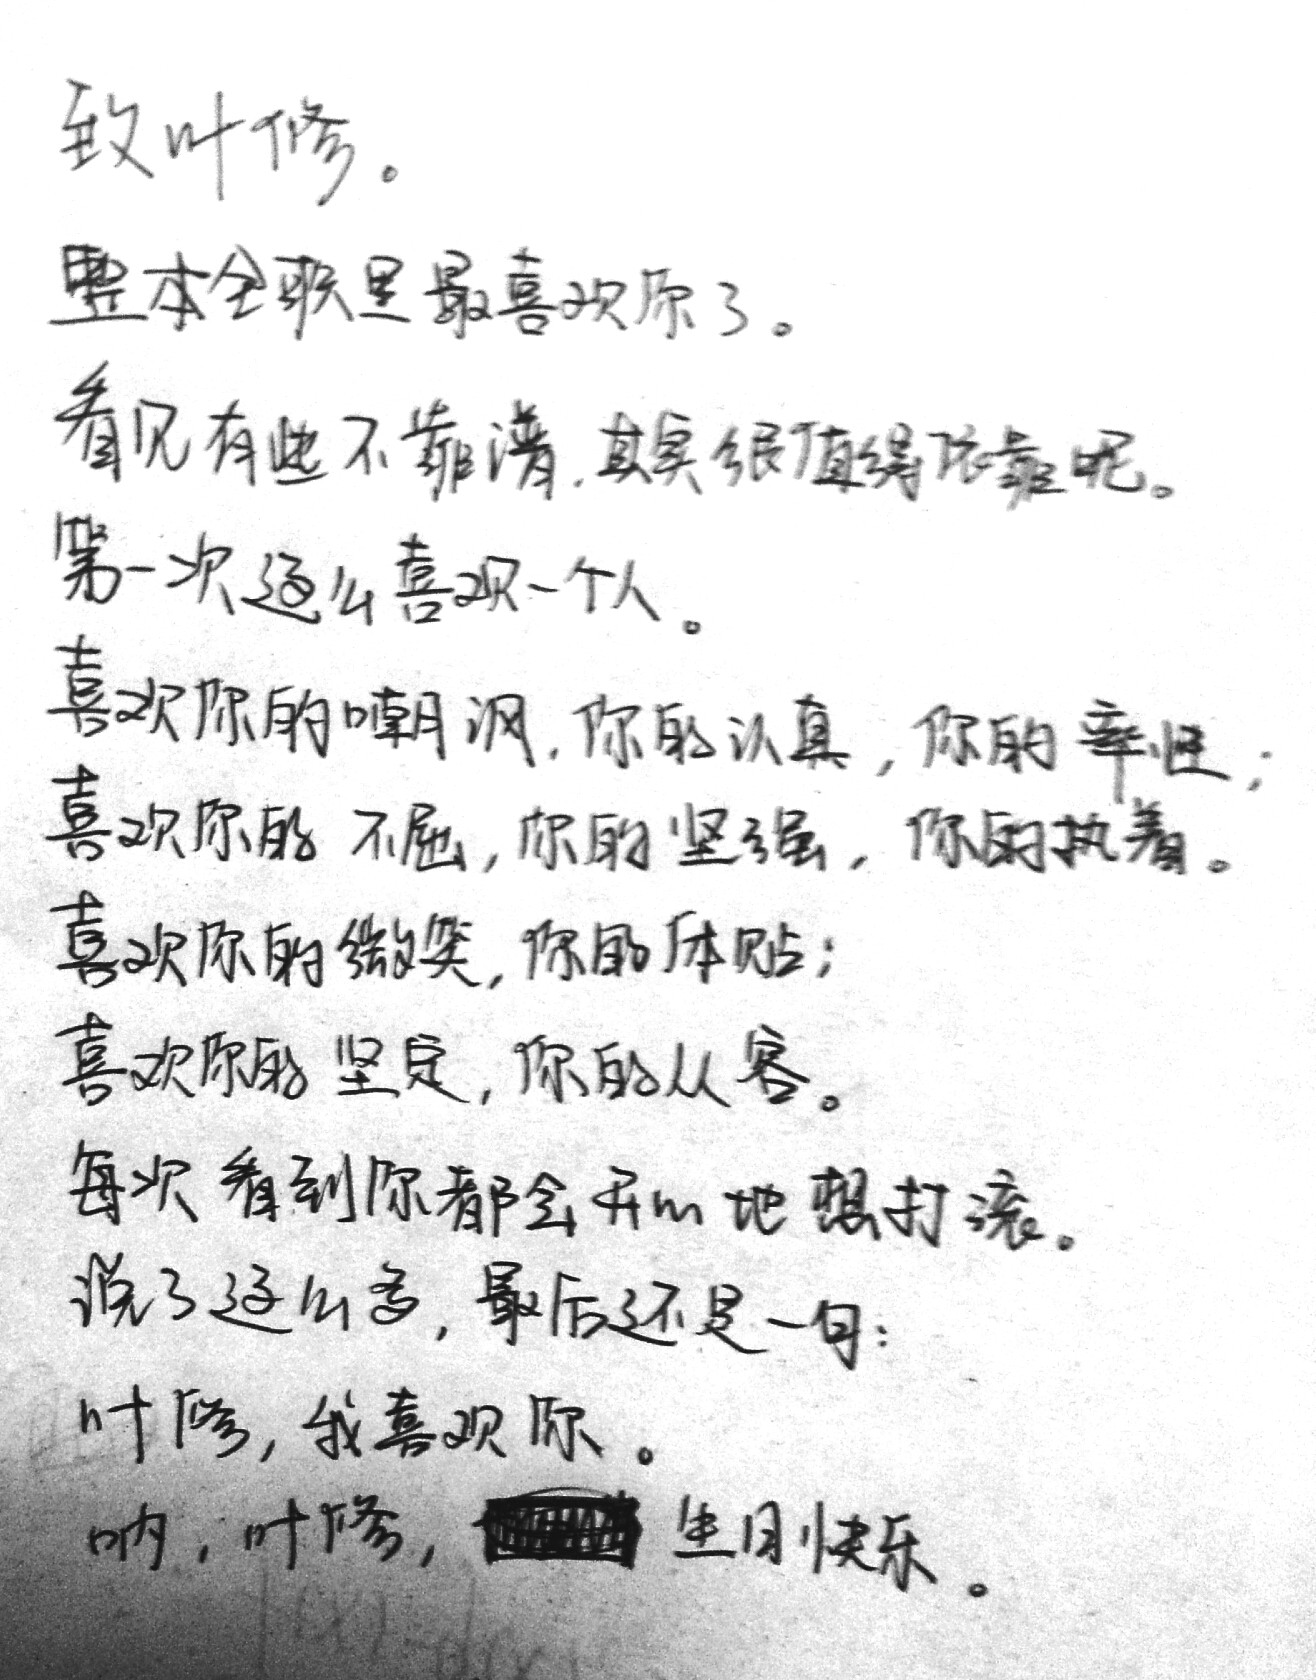 致叶修。
整本全职里最喜欢你了。
看见有些不靠谱,其实很值得依靠呢。
第一次这么喜欢一个人。
喜欢你的嘲讽,你的认真,你的率性;
喜欢你的不屈,你的坚强,你的执着。
喜欢你的微笑,你的体贴;
喜欢你的坚定,你的从容。
每次看到你都会开心地想打滚。
说了这么多,最后还是一句:
叶修,我喜欢你。
呐,叶修, 生日快乐。